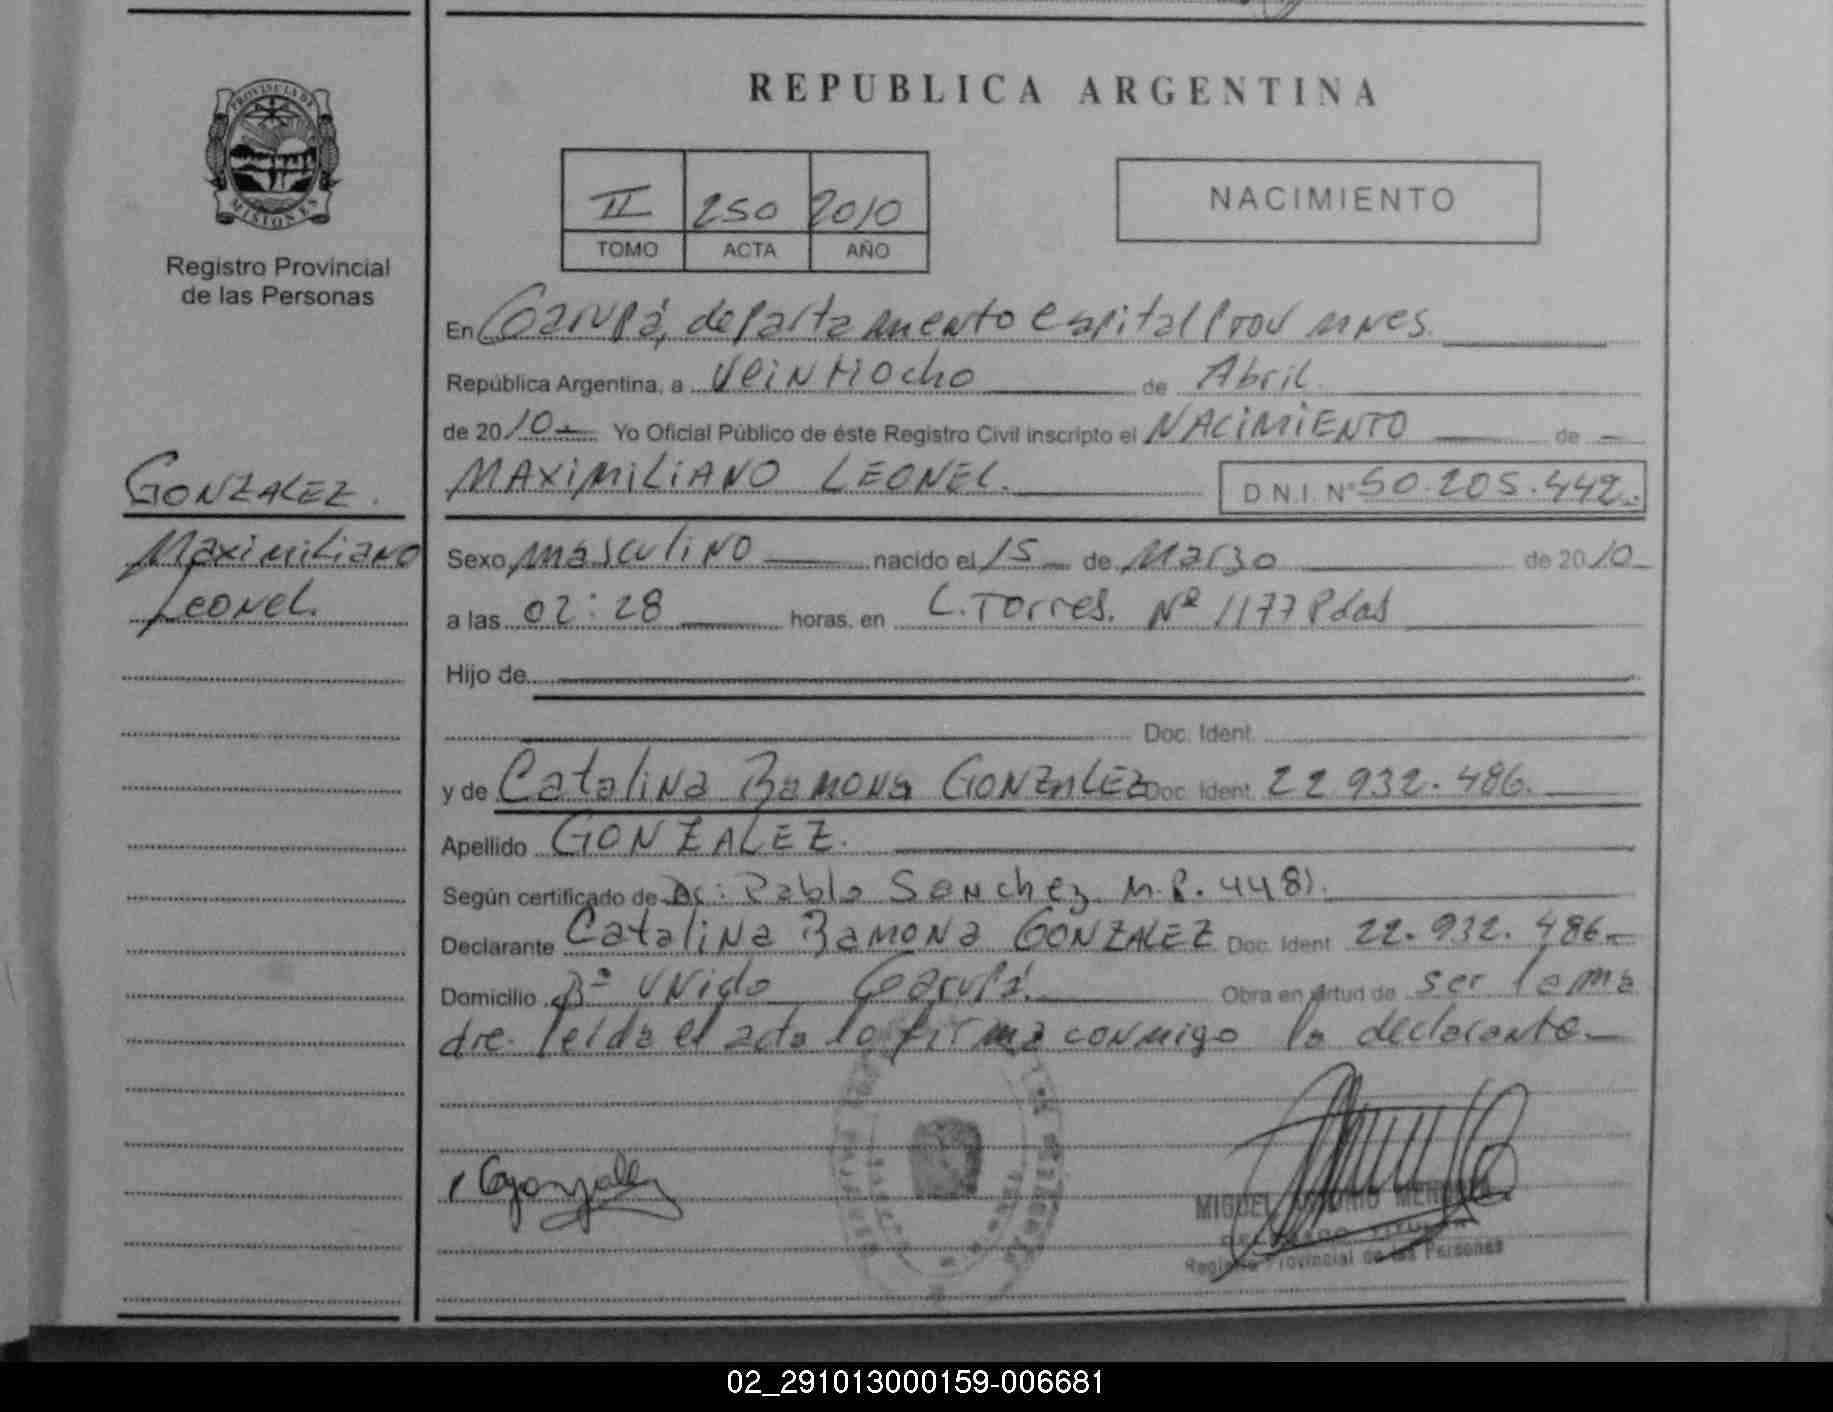 PROVINCIA DE
MISIONES
Registro Provincial
de las Personas
GONZALEZ.
Maximiliano
Leonel.
REPUBLICA ARGENTINA
II 250 2010
TOMO ACTA AÑO
NACIMIENTO
En Garupá, departamento Capital Prov Mnes.
República Argentina, a Veintiocho de Abril.
de 2010 Yo Oficial Público de éste Registro Civil inscripto el NACIMIENTO de
MAXIMILIANO LEONEL. D.N.I. Nº 50.205.442.
Sexo masculino nacido el 15 de Marzo de 2010
a las 02:28 horas, en L. Torres. Nº 1177 Pdas
Hijo de
Doc. Ident.
y de Catalina Ramona GONZALEZ Doc. Ident. 22.932.486.
Apellido GONZALEZ.
Según certificado de Dr: Pablo Sanchez M.P. 4481.
Declarante Catalina Ramona GONZALEZ Doc. Ident 22.932.486.
Domicilio Bº Unido Garupá. Obra en virtud de ser la ma
dre. leída el acta lo firma conmigo la declarante.
CGonzalez
MIGUEL ANTONIO
DELEGADO TITULAR
Registro Provincial de las Personas
02_291013000159-006681